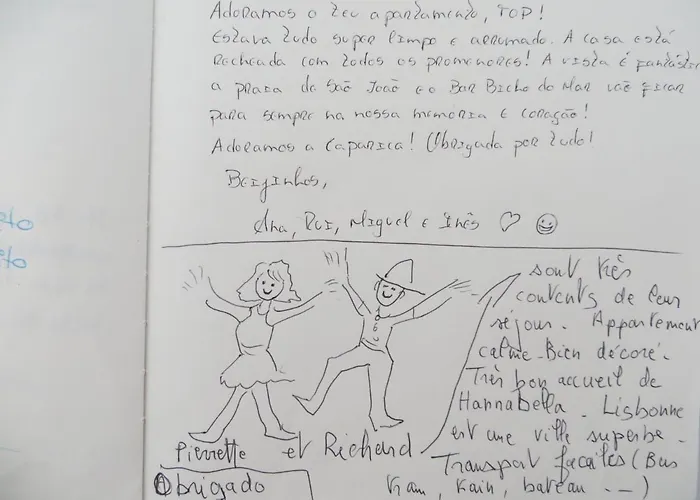 Adoramos o teu apartamento, TOP!
Estava tudo super limpo e arrumado. A casa está
recheada com todos os promenores! A vista é fantástic
a praia de São João e o Bar Bicho do Mar vão ficar
para sempre na nossa memória e coração!
Adoramos a Caparica! Obrigada por tudo!
Beijinhos,
Ana, Rui, Miguel e Inês
sont très
contents de leur
séjour. Appartement
calme. Bien décoré.
Très bon accueil de
Hannabella. Lisbonne
est une ville superbe.
Transport faciles (Bus
tram, train, bateau --)
Pierrette et Richard
Obrigado